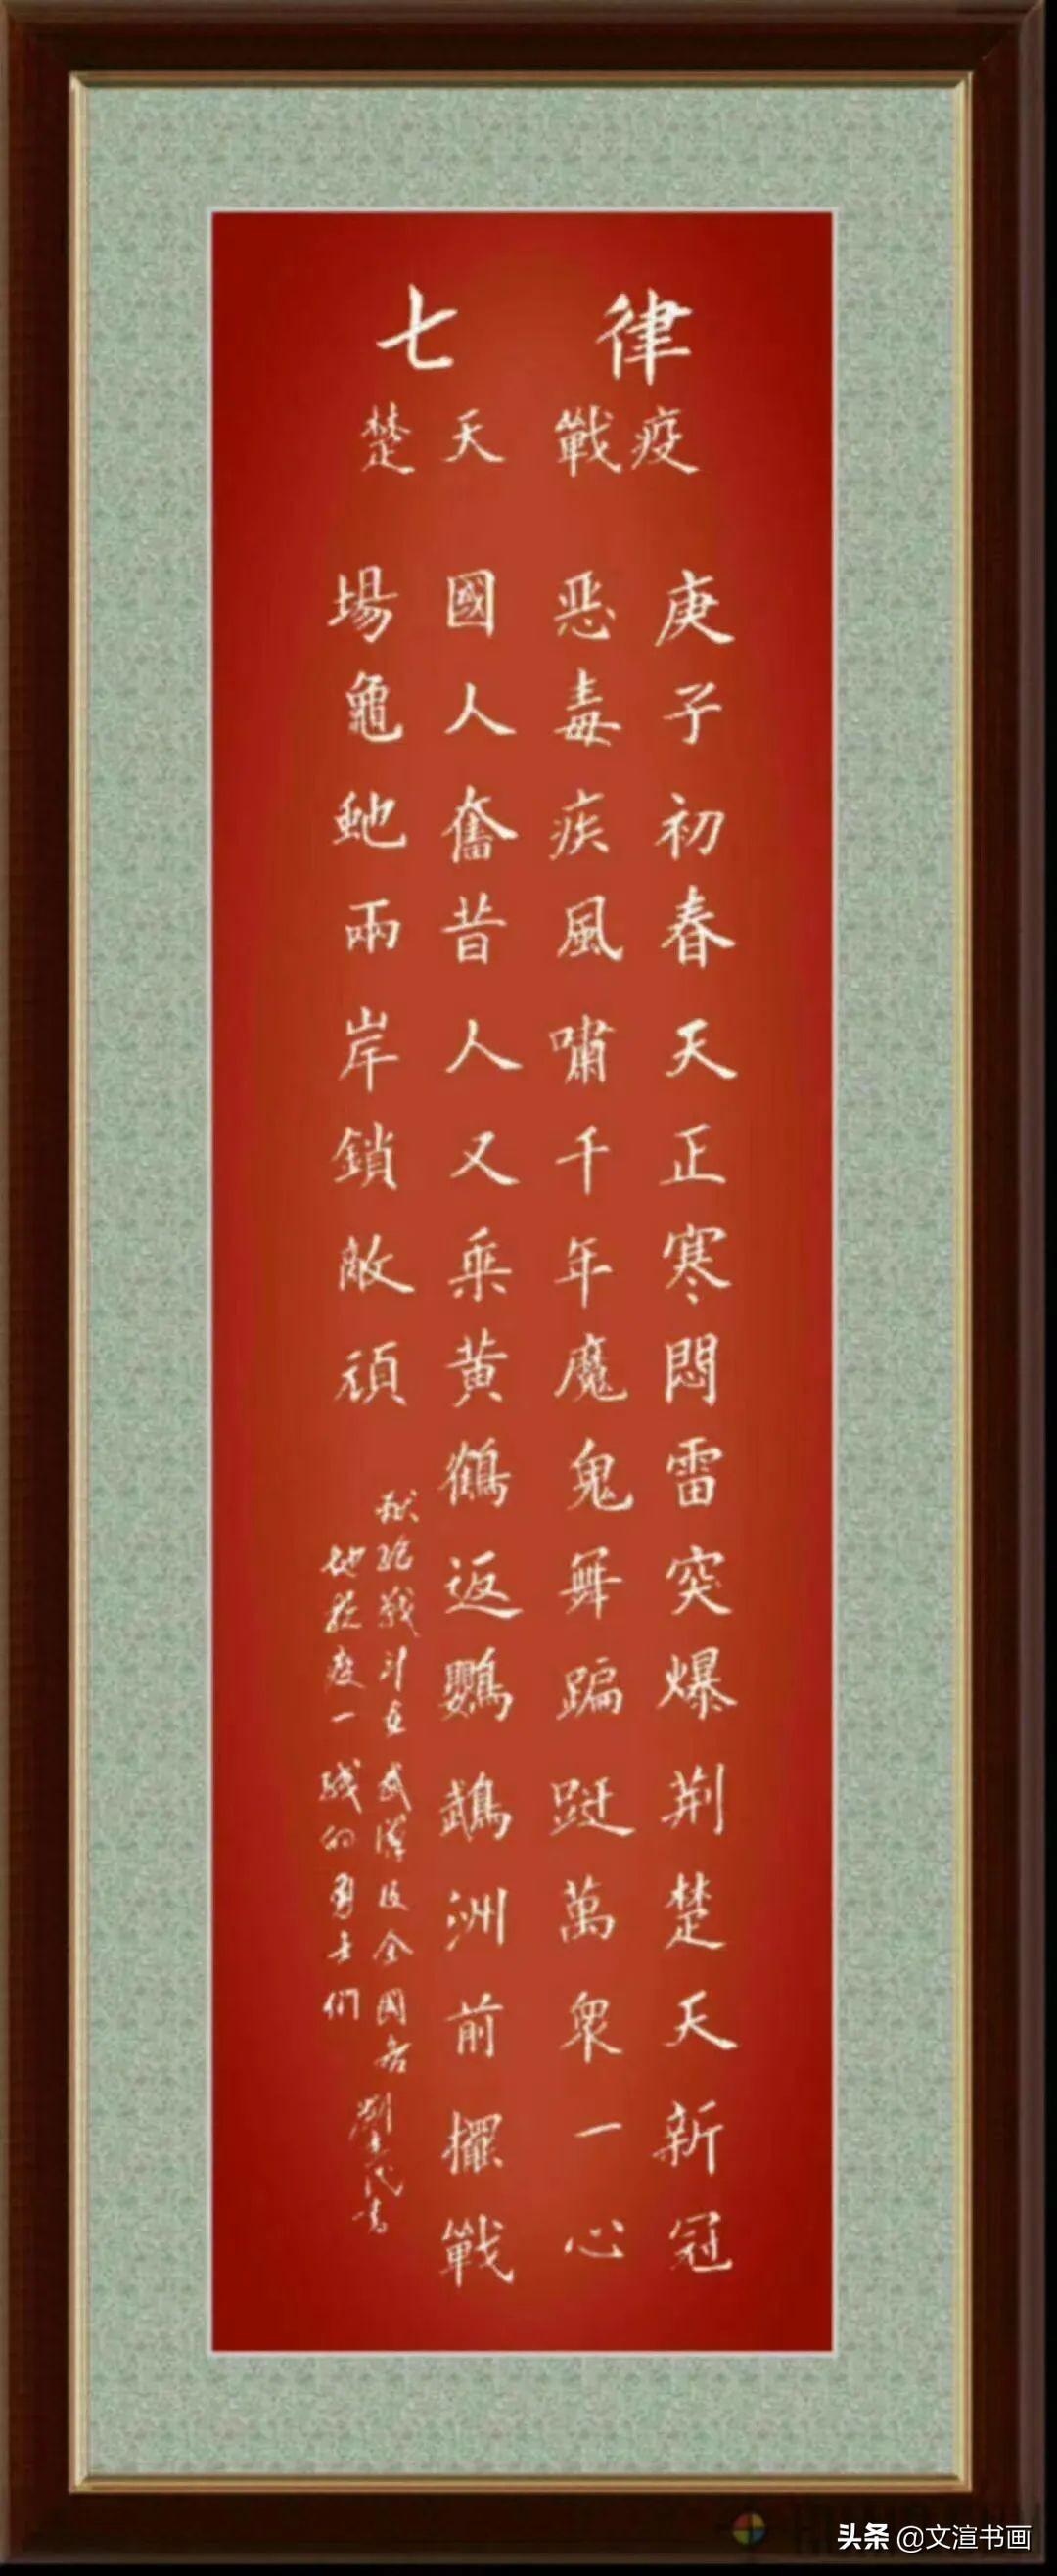 七律
楚天戰疫
庚子初春天正寒悶雷突爆荆楚天新冠
恶毒疾風嘯千年魔鬼舞蹁跹萬衆一心
國人奮昔人又乘黄鶴返鸚鵡洲前擺戰
場龜虵兩岸鎖敵頑
献给戰斗在武漢及全國各
地抗疫一线的勇士們
劉書
头条 @文渲书画